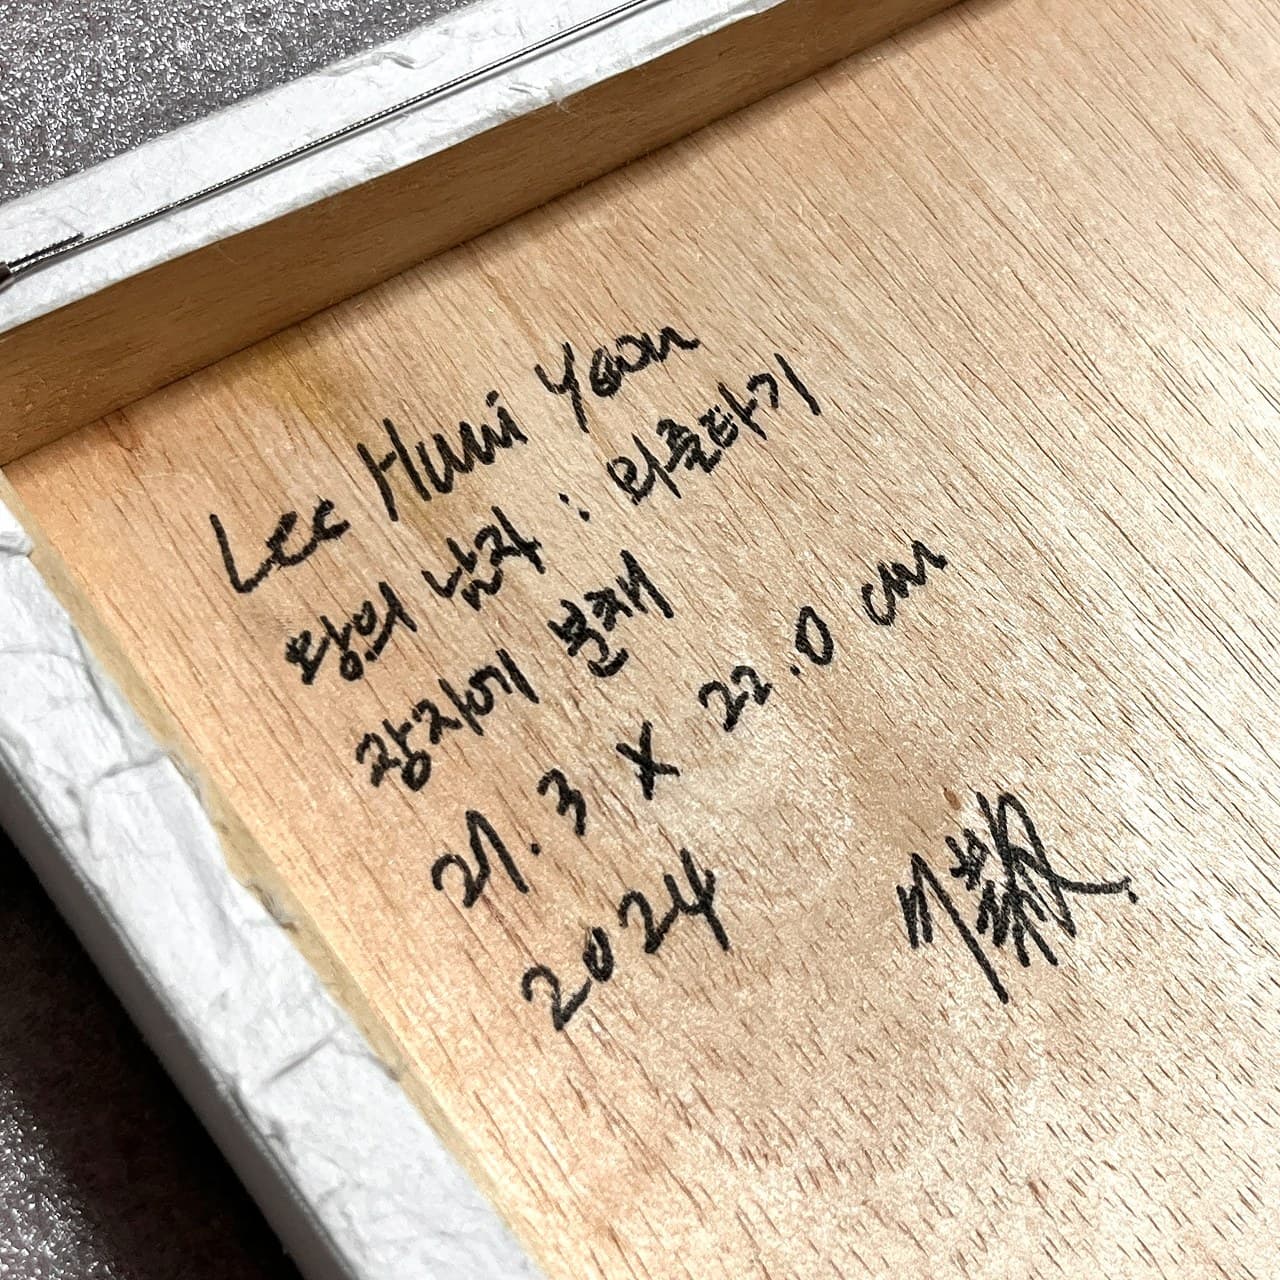 Lee Hwi Yeon
왕의 남자 : 외줄타기
장지에 분채
27.3 X 22.0 cm
2024